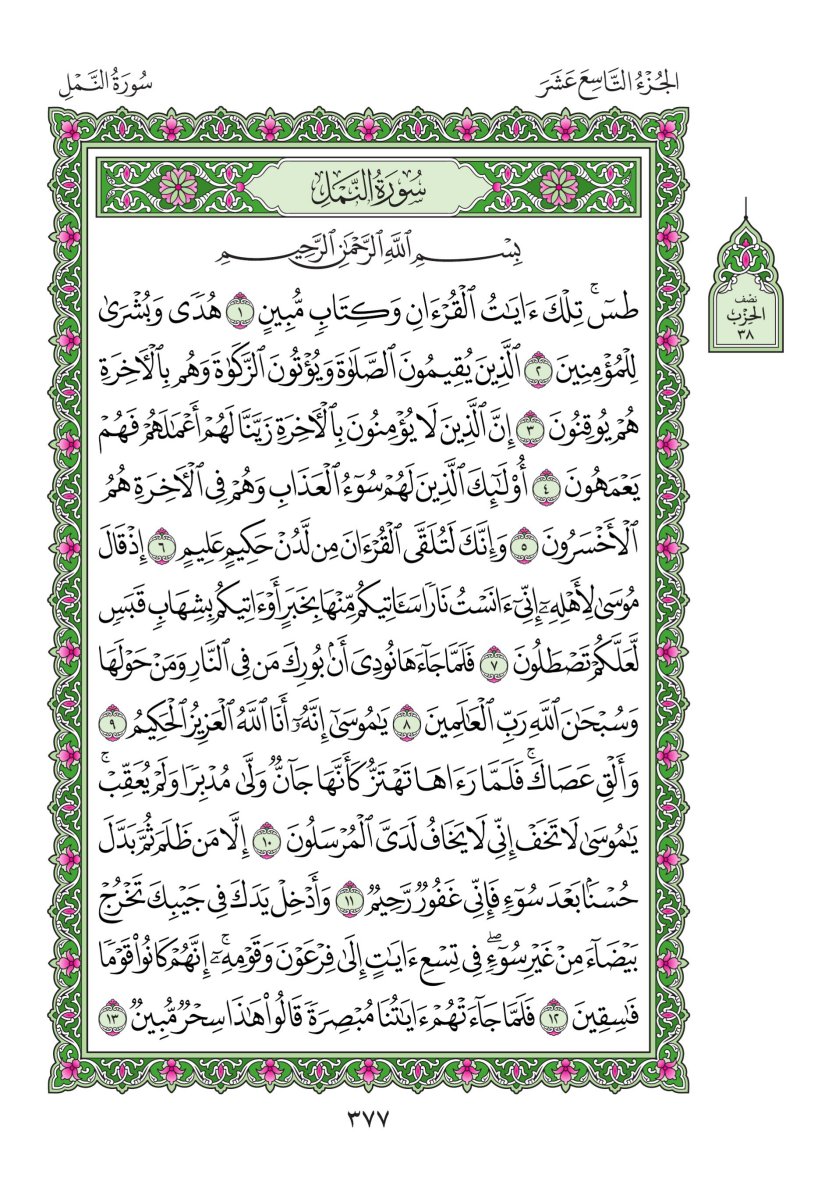 الجُزْءُ التَّاسِعَ عَشَرَ
سُورَةُ النَّمْلِ
سُورَةُ النَّمْلِ
بِسْمِ ٱللَّهِ ٱلرَّحْمَٰنِ ٱلرَّحِيمِ
طسٓۚ تِلْكَ ءَايَٰتُ ٱلْقُرْءَانِ وَكِتَابٖ مُّبِينٍ ١ هُدٗى وَبُشْرَىٰ
لِلْمُؤْمِنِينَ ٢ ٱلَّذِينَ يُقِيمُونَ ٱلصَّلَوٰةَ وَيُؤْتُونَ ٱلزَّكَوٰةَ وَهُم بِٱلْأٓخِرَةِ
هُمْ يُوقِنُونَ ٣ إِنَّ ٱلَّذِينَ لَا يُؤْمِنُونَ بِٱلْأٓخِرَةِ زَيَّنَّا لَهُمْ أَعْمَٰلَهُمْ فَهُمْ
يَعْمَهُونَ ٤ أُوْلَٰٓئِكَ ٱلَّذِينَ لَهُمْ سُوٓءُ ٱلْعَذَابِ وَهُمْ فِي ٱلْأٓخِرَةِ هُمُ
ٱلْأَخْسَرُونَ ٥ وَإِنَّكَ لَتُلَقَّى ٱلْقُرْءَانَ مِن لَّدُنْ حَكِيمٍ عَلِيمٍ ٦ إِذْ قَالَ
مُوسَىٰ لِأَهْلِهِۦٓ إِنِّيٓ ءَانَسْتُ نَارٗا سَـَٔاتِيكُم مِّنْهَا بِخَبَرٍ أَوْ ءَاتِيكُم بِشِهَابٖ قَبَسٖ
لَّعَلَّكُمْ تَصْطَلُونَ ٧ فَلَمَّا جَآءَهَا نُودِيَ أَنۢ بُورِكَ مَن فِي ٱلنَّارِ وَمَنْ حَوْلَهَا
وَسُبْحَٰنَ ٱللَّهِ رَبِّ ٱلْعَٰلَمِينَ ٨ يَٰمُوسَىٰٓ إِنَّهُۥٓ أَنَا ٱللَّهُ ٱلْعَزِيزُ ٱلْحَكِيمُ ٩
وَأَلْقِ عَصَاكَۚ فَلَمَّا رَءَاهَا تَهْتَزُّ كَأَنَّهَا جَآنّٞ وَلَّىٰ مُدْبِرٗا وَلَمْ يُعَقِّبْۚ
يَٰمُوسَىٰ لَا تَخَفْ إِنِّي لَا يَخَافُ لَدَيَّ ٱلْمُرْسَلُونَ ١٠ إِلَّا مَن ظَلَمَ ثُمَّ بَدَّلَ
حُسْنَۢا بَعْدَ سُوٓءٖ فَإِنِّي غَفُورٞ رَّحِيمٞ ١١ وَأَدْخِلْ يَدَكَ فِي جَيْبِكَ تَخْرُجْ
بَيْضَآءَ مِنْ غَيْرِ سُوٓءٖۖ فِي تِسْعِ ءَايَٰتٍ إِلَىٰ فِرْعَوْنَ وَقَوْمِهِۦٓۚ إِنَّهُمْ كَانُواْ قَوْمٗا
فَٰسِقِينَ ١٢ فَلَمَّا جَآءَتْهُمْ ءَايَٰتُنَا مُبْصِرَةٗ قَالُواْ هَٰذَا سِحْرٞ مُّبِينٞ ١٣
نصف
الحِزْب
٣٨
٣٧٧